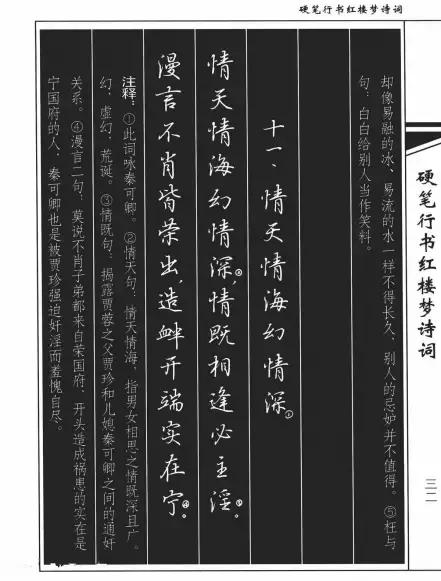 硬笔行书红楼梦诗词
硬笔行书红楼梦诗词
三二
却像易融的冰、易流的水一样不得长久,别人的忌妒并不值得。⑤枉与
句:白白给别人当作笑料。
十一、情天情海幻情深①
情天情海幻情深②,情既相逢必主淫③。
漫言不肖皆荣出造衅开端实在宁④。
注释:①此词咏秦可卿。②情天句:情天情海,指男女相思之情既深且广。
幻:虚幻、荒诞。③情既句:揭露贾蓉之父贾珍和儿媳秦可卿之间的通奸
关系。④漫言二句:莫说不肖子弟都来自荣国府,开头造成祸患的实在是
宁国府的人,秦可卿也是被贾珍强迫奸淫而羞愧自尽。